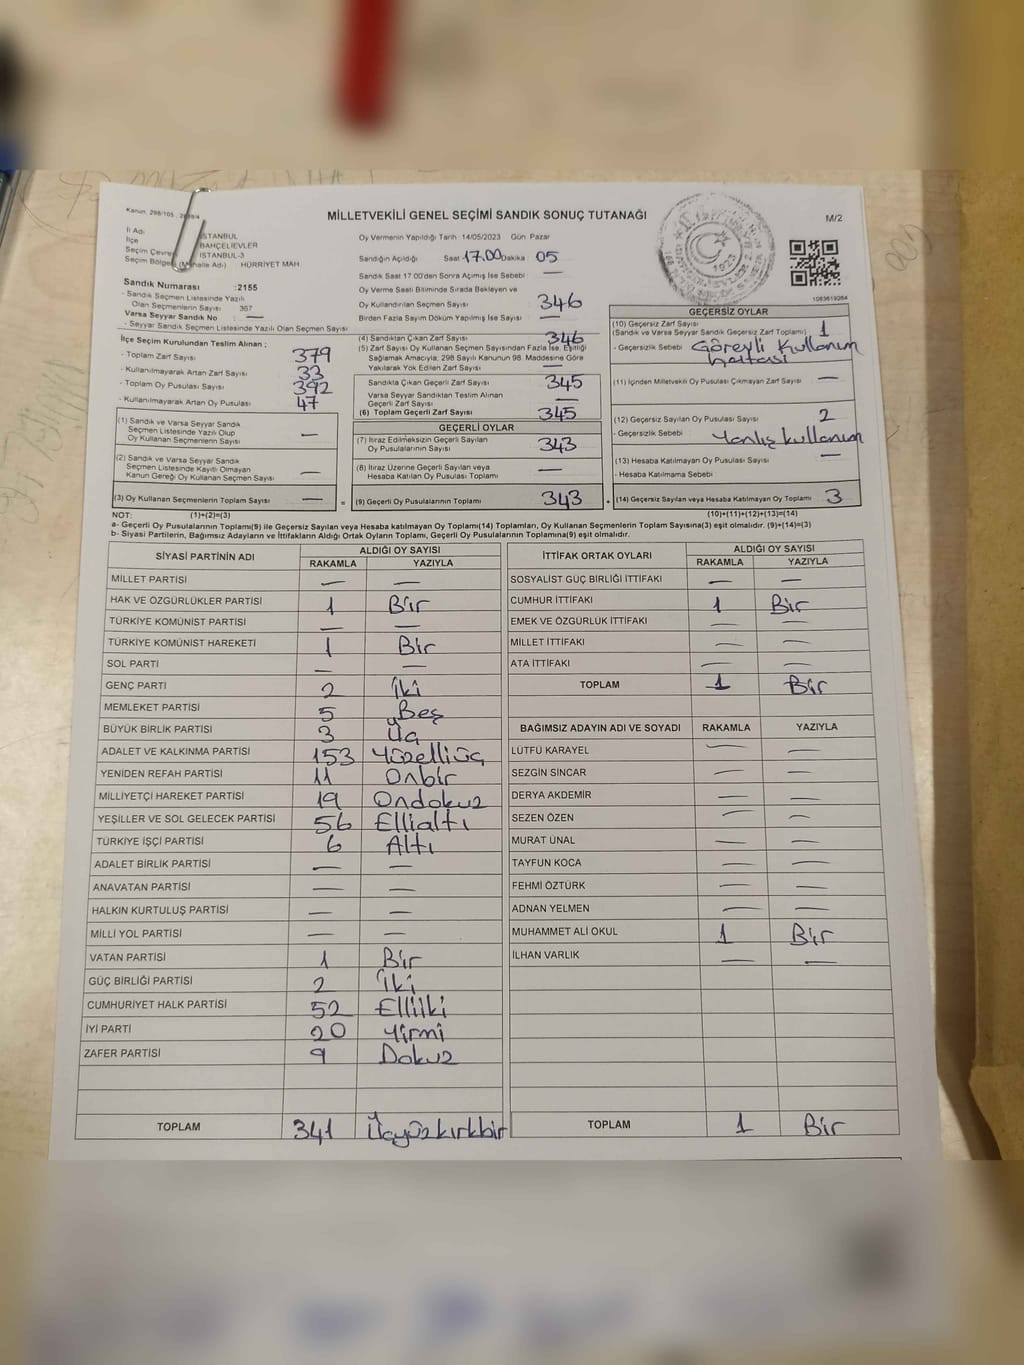 Kanun: 298/105
MİLLETVEKİLİ GENEL SEÇİMİ SANDIK SONUÇ TUTANAĞI
M/2
İl Adı İSTANBUL
İlçe BAHÇELİEVLER
Seçim Çevre İSTANBUL-3
Seçim Bölge (Mahalle Adı) HÜRRİYET MAH.
Oy Vermenin Yapıldığı Tarih 14/05/2023 Gün Pazar
Sandığın Açıldığı Saat 17.00 Dakika 05
Sandık Saat 17.00'den Sonra Açılmış İse Sebebi —
Oy Verme Saati Bitiminde Sırada Bekleyen ve
Oy Kullandırılan Seçmen Sayısı 346
Birden Fazla Sayım Döküm Yapılmış İse Sayısı —
Sandık Numarası :2155
- Sandık Seçmen Listesinde Yazılı
Olan Seçmenlerin Sayısı 367
Varsa Seyyar Sandık No —
- Seyyar Sandık Seçmen Listesinde Yazılı Olan Seçmen Sayısı
1923
İlçe Seçim Kurulundan Teslim Alınan ;
- Toplam Zarf Sayısı 379
- Kullanılmayarak Artan Zarf Sayısı 33
- Toplam Oy Pusulası Sayısı 392
- Kullanılmayarak Artan Oy Pusulası 47
(1) Sandık ve Varsa Seyyar Sandık
Seçmen Listesinde Yazılı Olup
Oy Kullanan Seçmenlerin Sayısı —
(2) Sandık ve Varsa Seyyar Sandık
Seçmen Listesinde Kayıtlı Olmayan
Kanun Gereği Oy Kullanan Seçmen Sayısı —
(3) Oy Kullanan Seçmenlerin Toplam Sayısı — =
(4) Sandıktan Çıkan Zarf Sayısı 346
(5) Zarf Sayısı Oy Kullanan Seçmen Sayısından Fazla İse, Eşitliği
Sağlamak Amacıyla, 298 Sayılı Kanunun 98. Maddesine Göre
Yakılarak Yok Edilen Zarf Sayısı —
Sandıkta Çıkan Geçerli Zarf Sayısı 345
Varsa Seyyar Sandıktan Teslim Alınan
Geçerli Zarf Sayısı —
(6) Toplam Geçerli Zarf Sayısı 345
GEÇERLİ OYLAR
(7) İtiraz Edilmeksizin Geçerli Sayılan
Oy Pusulalarının Toplamı 343
(8) İtiraz Üzerine Geçerli Sayılan veya
Hesaba Katılan Oy Pusulası Toplamı —
(9) Geçerli Oy Pusulalarının Toplamı 343 +
GEÇERSİZ OYLAR
(10) Geçersiz Zarf Sayısı
(Sandık ve Varsa Seyyar Sandık Geçersiz Zarf Toplamı) 1
- Geçersizlik Sebebi Görevli Kullanım
hatası
(11) İçinden Milletvekili Oy Pusulası Çıkmayan Zarf Sayısı —
(12) Geçersiz Sayılan Oy Pusulası Sayısı 2
- Geçersizlik Sebebi Yanlış kullanım
(13) Hesaba Katılmayan Oy Pusulası Sayısı —
- Hesaba Katılmama Sebebi
(14) Geçersiz Sayılan veya Hesaba Katılmayan Oy Toplamı 3
NOT: (1)+(2)=(3) (10)+(11)+(12)+(13)=(14)
a- Geçerli Oy Pusulalarının Toplamı(9) ile Geçersiz Sayılan veya Hesaba katılmayan Oy Toplamı(14) Toplamları, Oy Kullanan Seçmenlerin Toplam Sayısına(3) eşit olmalıdır. (9)+(14)=(3)
b- Siyasi Partilerin, Bağımsız Adayların ve İttifakların Aldığı Ortak Oyların Toplamı, Geçerli Oy Pusulalarının Toplamına(9) eşit olmalıdır.
SİYASİ PARTİNİN ADI ALDIĞI OY SAYISI
RAKAMLA YAZIYLA
MİLLET PARTİSİ — —
HAK VE ÖZGÜRLÜKLER PARTİSİ 1 Bir
TÜRKİYE KOMÜNİST PARTİSİ — —
TÜRKİYE KOMÜNİST HAREKETİ 1 Bir
SOL PARTİ — —
GENÇ PARTİ 2 İki
MEMLEKET PARTİSİ 5 Beş
BÜYÜK BİRLİK PARTİSİ 3 Üç
ADALET VE KALKINMA PARTİSİ 153 Yüzelliüç
YENİDEN REFAH PARTİSİ 11 Onbir
MİLLİYETÇİ HAREKET PARTİSİ 19 Ondokuz
YEŞİLLER VE SOL GELECEK PARTİSİ 56 Ellialtı
TÜRKİYE İŞÇİ PARTİSİ 6 Altı
ADALET BİRLİK PARTİSİ — —
ANAVATAN PARTİSİ — —
HALKIN KURTULUŞ PARTİSİ — —
MİLLİ YOL PARTİSİ — —
VATAN PARTİSİ 1 Bir
GÜÇ BİRLİĞİ PARTİSİ 2 İki
CUMHURİYET HALK PARTİSİ 52 Elliiki
İYİ PARTİ 20 Yirmi
ZAFER PARTİSİ 9 Dokuz
TOPLAM 341 Üçyüzkırkbir
İTTİFAK ORTAK OYLARI ALDIĞI OY SAYISI
RAKAMLA YAZIYLA
SOSYALİST GÜÇ BİRLİĞİ İTTİFAKI — —
CUMHUR İTTİFAKI 1 Bir
EMEK VE ÖZGÜRLÜK İTTİFAKI — —
MİLLET İTTİFAKI — —
ATA İTTİFAKI — —
TOPLAM 1 Bir
BAĞIMSIZ ADAYIN ADI VE SOYADI RAKAMLA YAZIYLA
LÜTFÜ KARAYEL — —
SEZGİN SİNCAR — —
DERYA AKDEMİR — —
SEZEN ÖZEN — —
MURAT ÜNAL — —
TAYFUN KOCA — —
FEHMİ ÖZTÜRK — —
ADNAN YELMEN — —
MUHAMMET ALİ OKUL 1 Bir
İLHAN VARLIK — —
TOPLAM 1 Bir